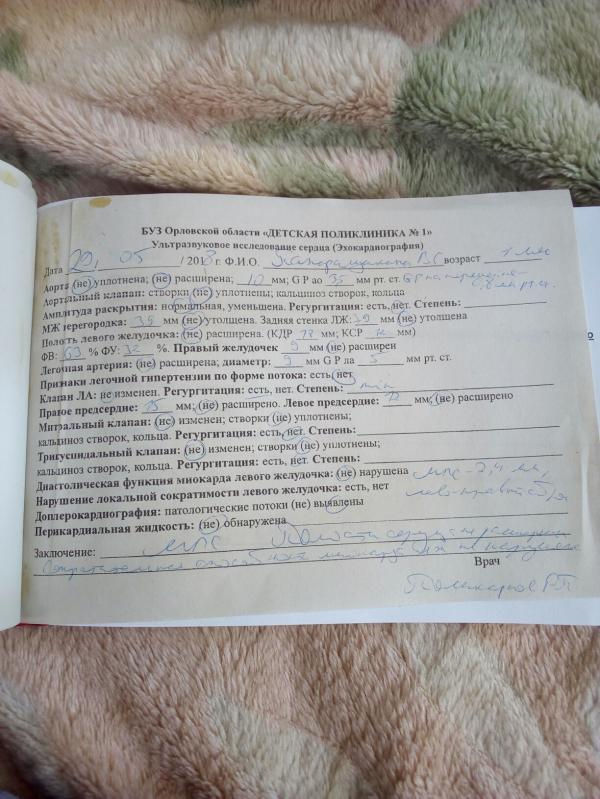 БУЗ Орловской области «ДЕТСКАЯ ПОЛИКЛИНИКА № 1»
Ультразвуковое исследование сердца (Эхокардиография)
Дата 29, 05 / 2018 г. Ф.И.О. возраст 1 мес
Аорта (не) уплотнена; (не) расширена; 10 мм; G P ао 35 мм рт. ст.
Аортальный клапан: створки (не) уплотнены; кальциноз створок, кольца
Амплитуда раскрытия: нормальная, уменьшена. Регургитация: есть, нет. Степень:
МЖ перегородка: 39 мм (не) утолщена. Задняя стенка ЛЖ: 39 мм (не) утолщена
Полость левого желудочка: (не) расширена. (КДР мм; КСР 12 мм)
ФВ: 63 % ФУ: 32 %. Правый желудочек 9 мм (не) расширен
Легочная артерия: (не) расширена; диаметр: 9 мм G P ла 5 мм рт. ст.
Признаки легочной гипертензии по форме потока: есть, нет
Клапан ЛА: не изменен. Регургитация: есть, нет. Степень: min
Правое предсердие: 15 мм; (не) расширено. Левое предсердие: мм; (не) расширено
Митральный клапан: (не) изменен; створки (не) уплотнены;
кальциноз створок, кольца. Регургитация: есть, нет. Степень:
Трикуспидальный клапан: (не) изменен; створки (не) уплотнены;
кальциноз створок, кольца. Регургитация: есть, нет. Степень:
Диастолическая функция миокарда левого желудочка: (не) нарушена мпс - 2,4 мм,
Нарушение локальной сократимости левого желудочка: есть, нет
Доплерокардиография: патологические потоки (не) выявлены
Перикардиальная жидкость: (не) обнаружена
Заключение: МПС Полости сердца не расширены
Сократительная способность миокарда ЛЖ не нарушена
Врач